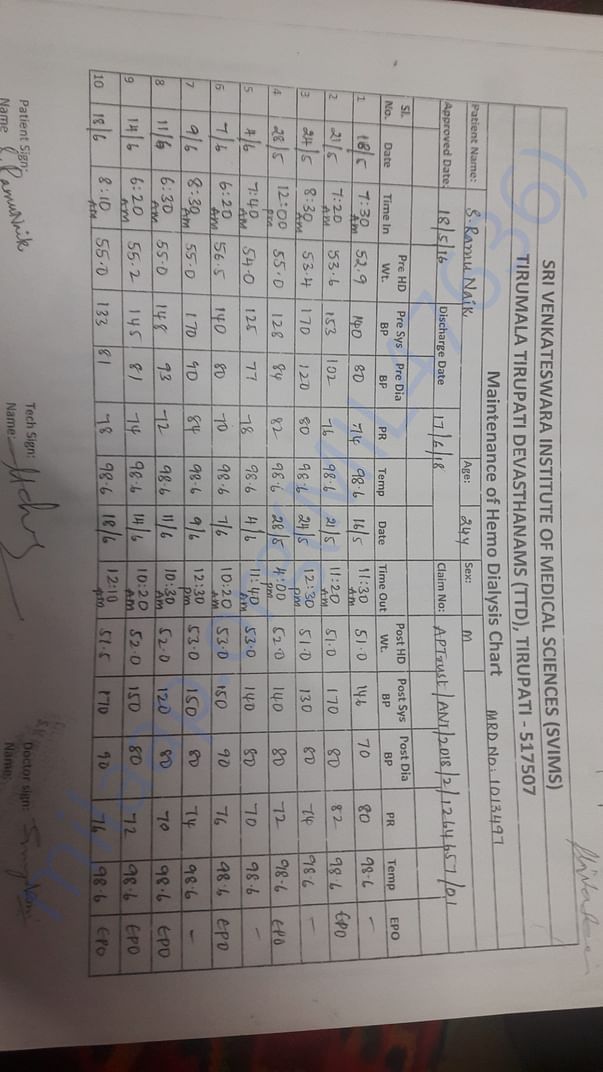 SRI VENKATESWARA INSTITUTE OF MEDICAL SCIENCES (SVIMS)
TIRUMALA TIRUPATI DEVASTHANAMS (TTD), TIRUPATI - 517507
Maintenance of Hemo Dialysis Chart MRD No: 1013497
Patient Name: S. Ramu Naik Age: 24y Sex: M
Approved Date: 18/5/18 Discharge Date 17/6/18 Claim No: APTrust/ANT/2018/2/1264657/01
Sl. No. Date Time In Pre HD Wt. Pre Sys BP Pre Dia BP PR Temp Date Time Out Post HD Wt. Post Sys BP Post Dia BP PR Temp EPO
1 18/5 7:30 Am 52.9 140 80 74 98.6 16/5 11:30 Am 51.0 146 70 80 98.6 -
2 21/5 7:20 Am 53.6 153 102 76 98.6 21/5 11:20 Am 51.0 170 80 82 98.6 EPO
3 24/5 8:30 Am 53.4 170 120 80 98.6 24/5 12:30 pm 51.0 130 80 74 98.6 -
4 28/5 12:00 pm 55.0 128 84 82 98.6 28/5 4:00 pm 52.0 140 80 72 98.6 EPO
5 4/6 7:40 Am 54.0 125 77 78 98.6 4/6 11:40 Am 53.0 140 80 70 98.6 -
6 7/6 6:20 Am 56.5 140 80 70 98.6 7/6 10:20 Am 53.0 150 90 76 98.6 EPO
7 9/6 8:30 Am 55.0 170 90 84 98.6 9/6 12:30 pm 53.0 150 80 74 98.6 -
8 11/6 6:30 Am 55.0 148 93 72 98.6 11/6 10:30 Am 52.0 120 80 70 98.6 EPO
9 14/6 6:20 Am 55.2 145 81 74 98.6 14/6 10:20 Am 52.0 150 80 72 98.6 EPO
10 18/6 8:10 Am 55.0 133 81 78 98.6 18/6 12:10 pm 51.5 170 90 76 98.6 EPO
Patient Sign: Tech Sign: Doctor sign:
Name S. RamuNaik Name: Name: